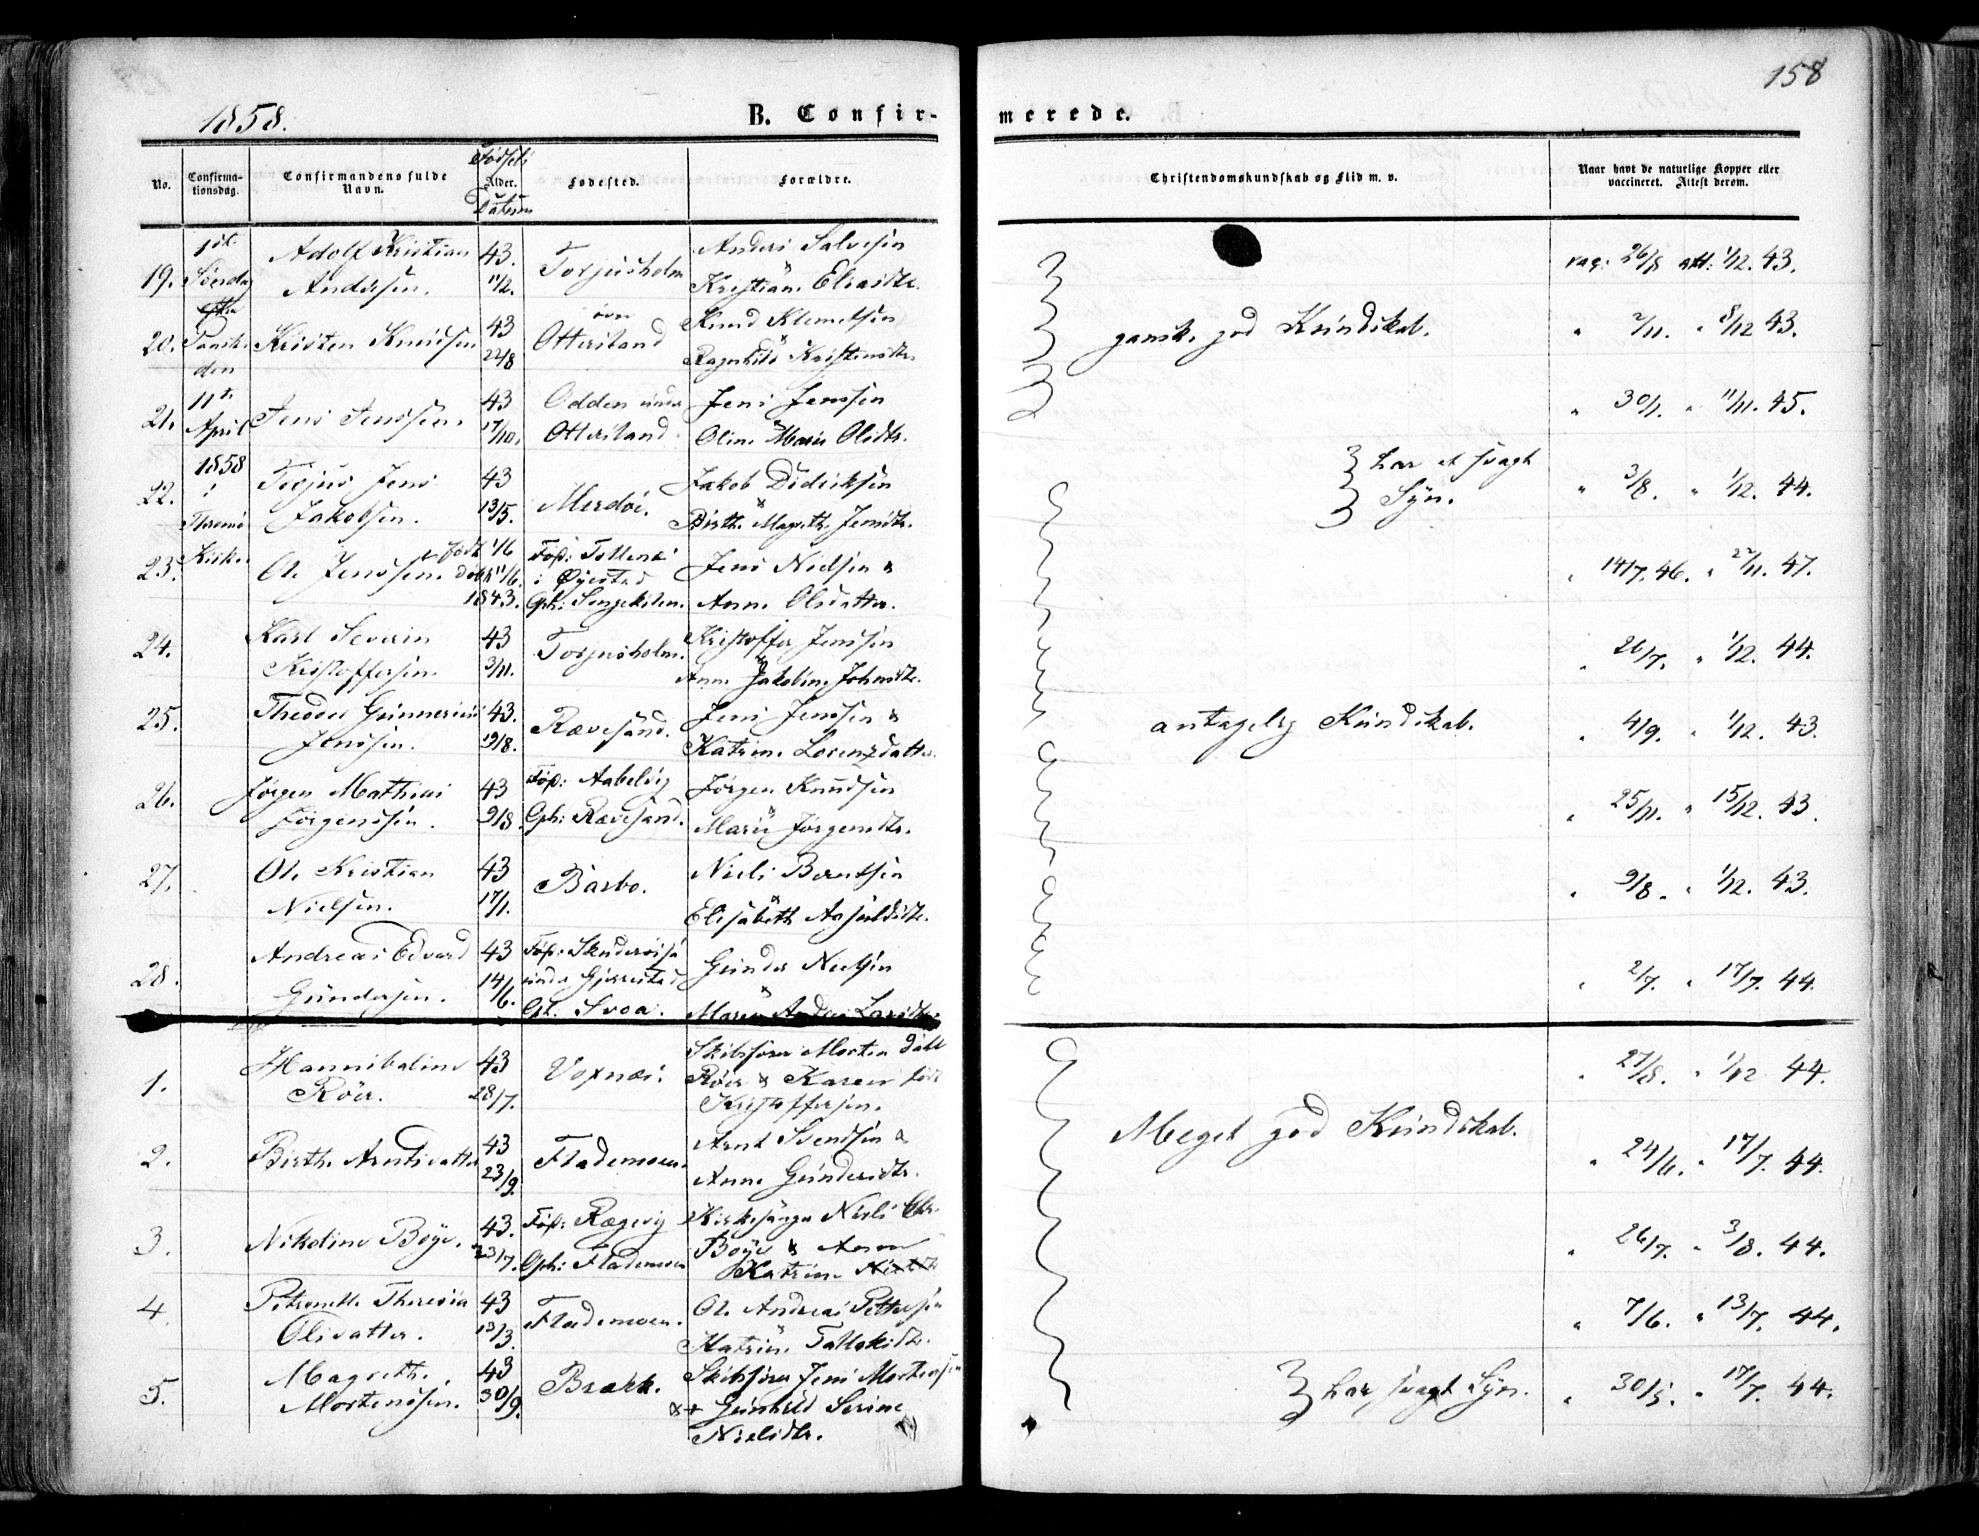 158
1858.
B. Confir-
merede.
Fødsels
No.
Confirma-
tionsdag.
Confirmandens fulde
Navn.
Alder.
Datum
Fødested.
Forældre.
Christendomskundskab og Flid m. v.
Naar havt de naturlige Kopper eller
vaccineret. Attest derom.
1ste
Søndag
efter
Paaske
den
11te
April
1858
i
Tromø
Kirke.
19. Adolf Kristian 43. Torjusholm Anders Salvesen
Andersen. 11/2. & Kristiane Eliasdtr.
vac: 26/8 att: 1/12. 43.
20. Kristen Knudsen 43 øvre Knud Klemetsen
22/8 Otterstand & Ragnhild Kristensdtr.
ganske god Kundskab. " 2/11. " 8/12 43.
21. Jens Jenssen. 43 Odden under Jens Jenssen
17/10. Otterstand. & Oline Marie Olsdtr.
" 30/1. " 11/11. 45.
22. Torjus Jens 43 Merdøi. Jakob Didriksen
Jakobsen. 13/5. & Birthe Magrethe Jensdtr.
har et svagt
Syn.
" 3/8. " 1/12. 44.
23. Ole Jenssen. født 1/6 Føs: Tottenæs Jens Nielsen &
døbt 11/6. i Øyestad
1843. Oph: Sengekilen. Anne Olsdatter.
" 14/7. 46. " 27/11. 47.
24. Karl Severin 43 Torjusholm. Kristoffer Jenssen
Kristoffersen. 3/11. & Anne Jakobine Johnsdtr.
" 26/7. " 1/12. 44.
25. Theodor Gunnerius 43. Rævesand. Jens Jenssen &
Jenssen. 19/8. Katrine Lorenzdatter.
antagelig Kundskab. " 4/9. " 1/12. 43.
26. Jørgen Mathias 43 Føs: Aabelvig Jørgen Knudsen
Jørgenssen. 9/8. Oph: Rævesand. & Marie Jørgensdtr.
" 25/11. " 15/12. 43.
27. Ole Kristian 43 Barbo. Niels Berntsen
Nielsen. 17/1. & Elisabeth Aasuldsdtr.
" 9/8. " 1/12. 43.
28. Andreas Edvard 43 Gunder Nielsen
Gundersen. 14/6. under Gjerrestad & Maren
" 2/7. " 17/7. 44.
1. Hannibaline 43 Voxnæs. Skibsfører Morten Dahl
Røer. 28/7. Røer & Karen født
Kristoffersen.
" 27/8. " 1/12 44.
2. Birthe Arntsdatter 43 Flademoen. Arnt Svendsen &
23/9. Anne Gundersdtr.
Meget god Kundskab. " 24/6. " 17/7. 44.
3. Nikoline Boye. 43. Føs: Rægevig Kirkesanger Niels Chr.
23/7. Oph: Flademoen Boye & Anne
Katrine
" 26/7. " 3/8. 44.
4. Petronelle Theresia 43 Flademoen. Ole Andreas Pettersen
Olsdatter. 13/3. & Katrine Tallaksdtr.
" 7/6. " 13/7. 44.
5. Magrethe 43 Brække. Skibsfører Jens Mortensen
Mortenssen. 30/9. & Gunhild Serine
Nielsdtr.
har svagt Syn. " 30/5. " 17/7. 44.